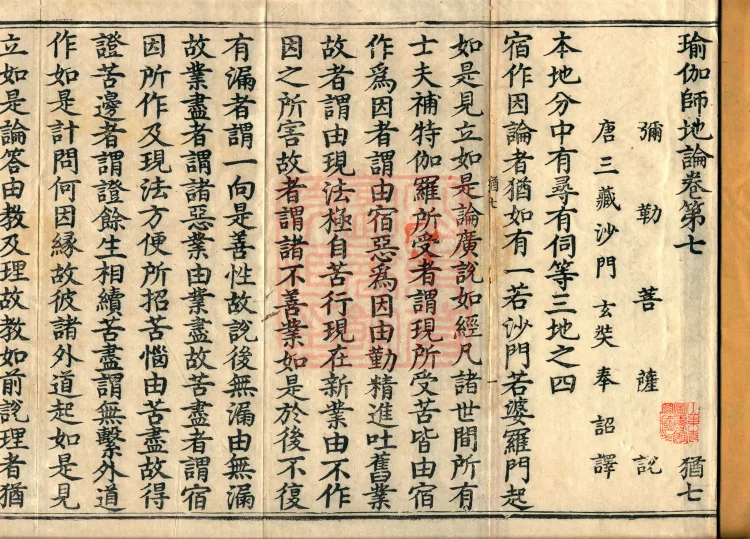 瑜伽師地論卷第七 猶七
彌勒菩薩說
唐三藏沙門玄奘奉詔譯
本地分中有尋有伺等三地之四
宿作因論者猶如有一若沙門若婆羅門起
如是見立如是論廣說如經凡諸世間所有
士夫補特伽羅所受者謂現所受苦皆由宿
作爲因者謂由宿惡爲因由勤精進吐舊業
故者謂由現法極自苦行現在新業由不作
因之所害故者謂諸不善業如是於後不復
有漏者謂一向是善性故說後無漏由無漏
故業盡者謂諸惡業由業盡故苦盡者謂宿
因所作及現法方便所招苦惱由苦盡故得
證苦邊者謂證餘生相續苦盡謂無繫外道
作如是計問何因緣故彼諸外道起如是見
立如是論答由教及理故教如前說理者猶
猶七
一